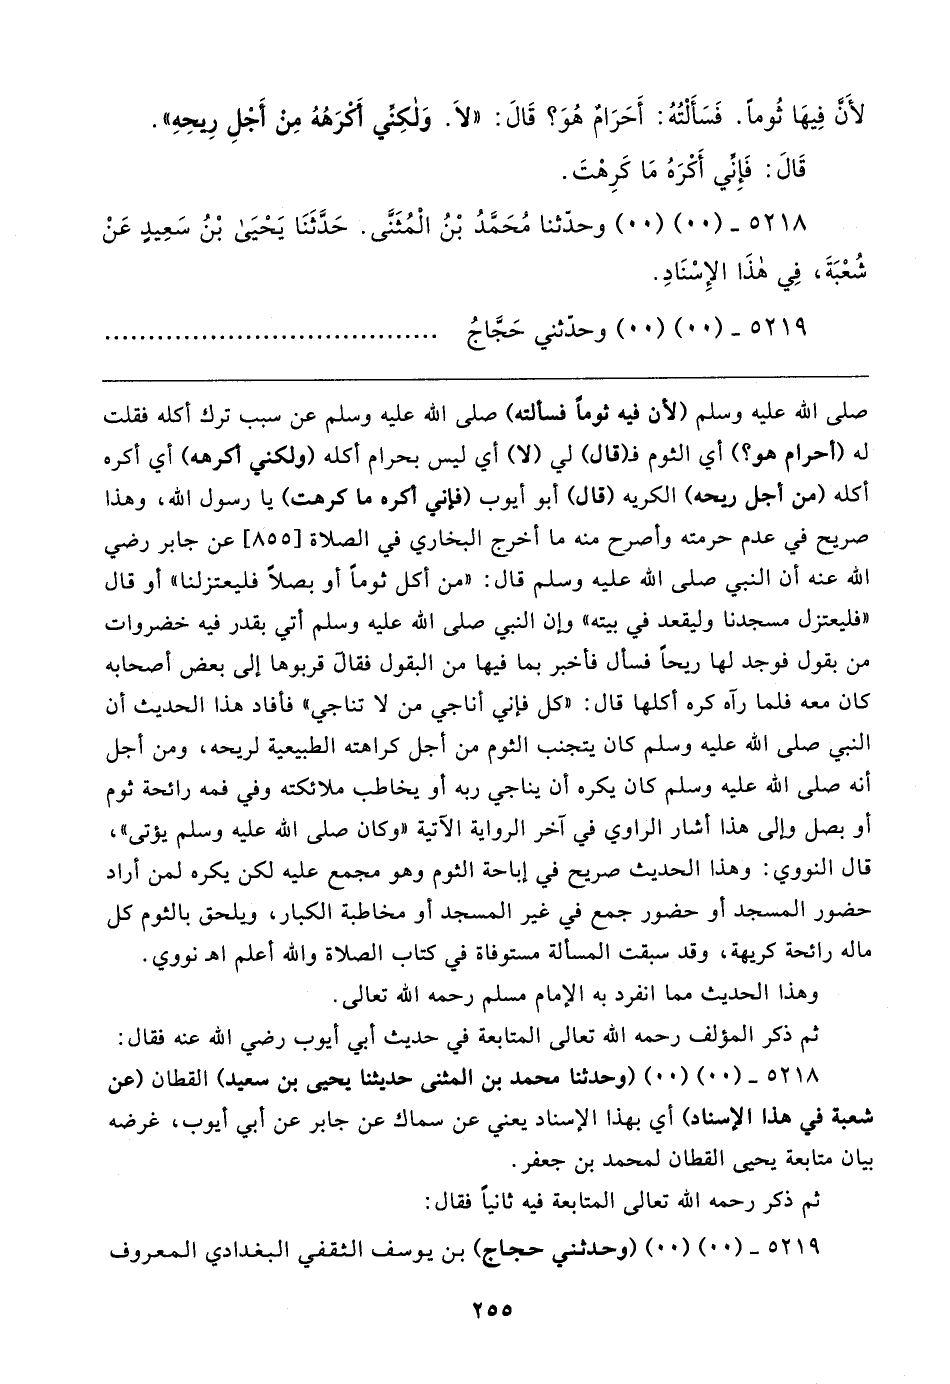 لأَنَّ فِيهَا ثُوماً. فَسَأَلْتُهُ: أَحَرَامٌ هُوَ؟ قَالَ: «لاَ. وَلٰكِنِّي أَكْرَهُهُ مِنْ أَجْلِ رِيحِهِ».
قَالَ: فَإِنِّي أَكْرَهُ مَا كَرِهْتَ.
٥٢١٨ ـ (٠٠) (٠٠) وحدّثنا مُحَمَّدُ بْنُ الْمُثَنَّى. حَدَّثَنَا يَحْيَىٰ بْنُ سَعِيدٍ عَنْ
شُعْبَةَ، فِي هٰذَا الإِسْنَادِ.
٥٢١٩ ـ (٠٠) (٠٠) وحدّثني حَجَّاجُ ......................................
صلى الله عليه وسلم (لأن فيه ثوماً فسألته) صلى الله عليه وسلم عن سبب ترك أكله فقلت
له (أحرام هو؟) أي الثوم فـ(قال) لي (لا) أي ليس بحرام أكله (ولكني أكرهه) أي أكره
أكله (من أجل ريحه) الكريه (قال) أبو أيوب (فإني أكره ما كرهت) يا رسول الله، وهذا
صريح في عدم حرمته وأصرح منه ما أخرج البخاري في الصلاة [٨٥٥] عن جابر رضي
الله عنه أن النبي صلى الله عليه وسلم قال: «من أكل ثوماً أو بصلاً فليعتزلنا» أو قال
«فليعتزل مسجدنا وليقعد في بيته» وإن النبي صلى الله عليه وسلم أتي بقدر فيه خضروات
من بقول فوجد لها ريحاً فسأل فأخبر بما فيها من البقول فقال قربوها إلى بعض أصحابه
كان معه فلما رآه كره أكلها قال: «كل فإني أناجي من لا تناجي» فأفاد هذا الحديث أن
النبي صلى الله عليه وسلم كان يتجنب الثوم من أجل كراهته الطبيعية لريحه، ومن أجل
أنه صلى الله عليه وسلم كان يكره أن يناجي ربه أو يخاطب ملائكته وفي فمه رائحة ثوم
أو بصل وإلى هذا أشار الراوي في آخر الرواية الآتية «وكان صلى الله عليه وسلم يؤتى»،
قال النووي: وهذا الحديث صريح في إباحة الثوم وهو مجمع عليه لكن يكره لمن أراد
حضور المسجد أو حضور جمع في غير المسجد أو مخاطبة الكبار، ويلحق بالثوم كل
ماله رائحة كريهة، وقد سبقت المسألة مستوفاة في كتاب الصلاة والله أعلم اهـ نووي.
وهذا الحديث مما انفرد به الإمام مسلم رحمه الله تعالى.
ثم ذكر المؤلف رحمه الله تعالى المتابعة في حديث أبي أيوب رضي الله عنه فقال:
٥٢١٨ ـ (٠٠) (٠٠) (وحدثنا محمد بن المثنى حديثنا يحيى بن سعيد) القطان (عن
شعبة في هذا الإسناد) أي بهذا الإسناد يعني عن سماك عن جابر عن أبي أيوب، غرضه
بيان متابعة يحيى القطان لمحمد بن جعفر.
ثم ذكر رحمه الله تعالى المتابعة فيه ثانياً فقال:
٥٢١٩ ـ (٠٠) (٠٠) (وحدثني حجاج) بن يوسف الثقفي البغدادي المعروف
٢٥٥